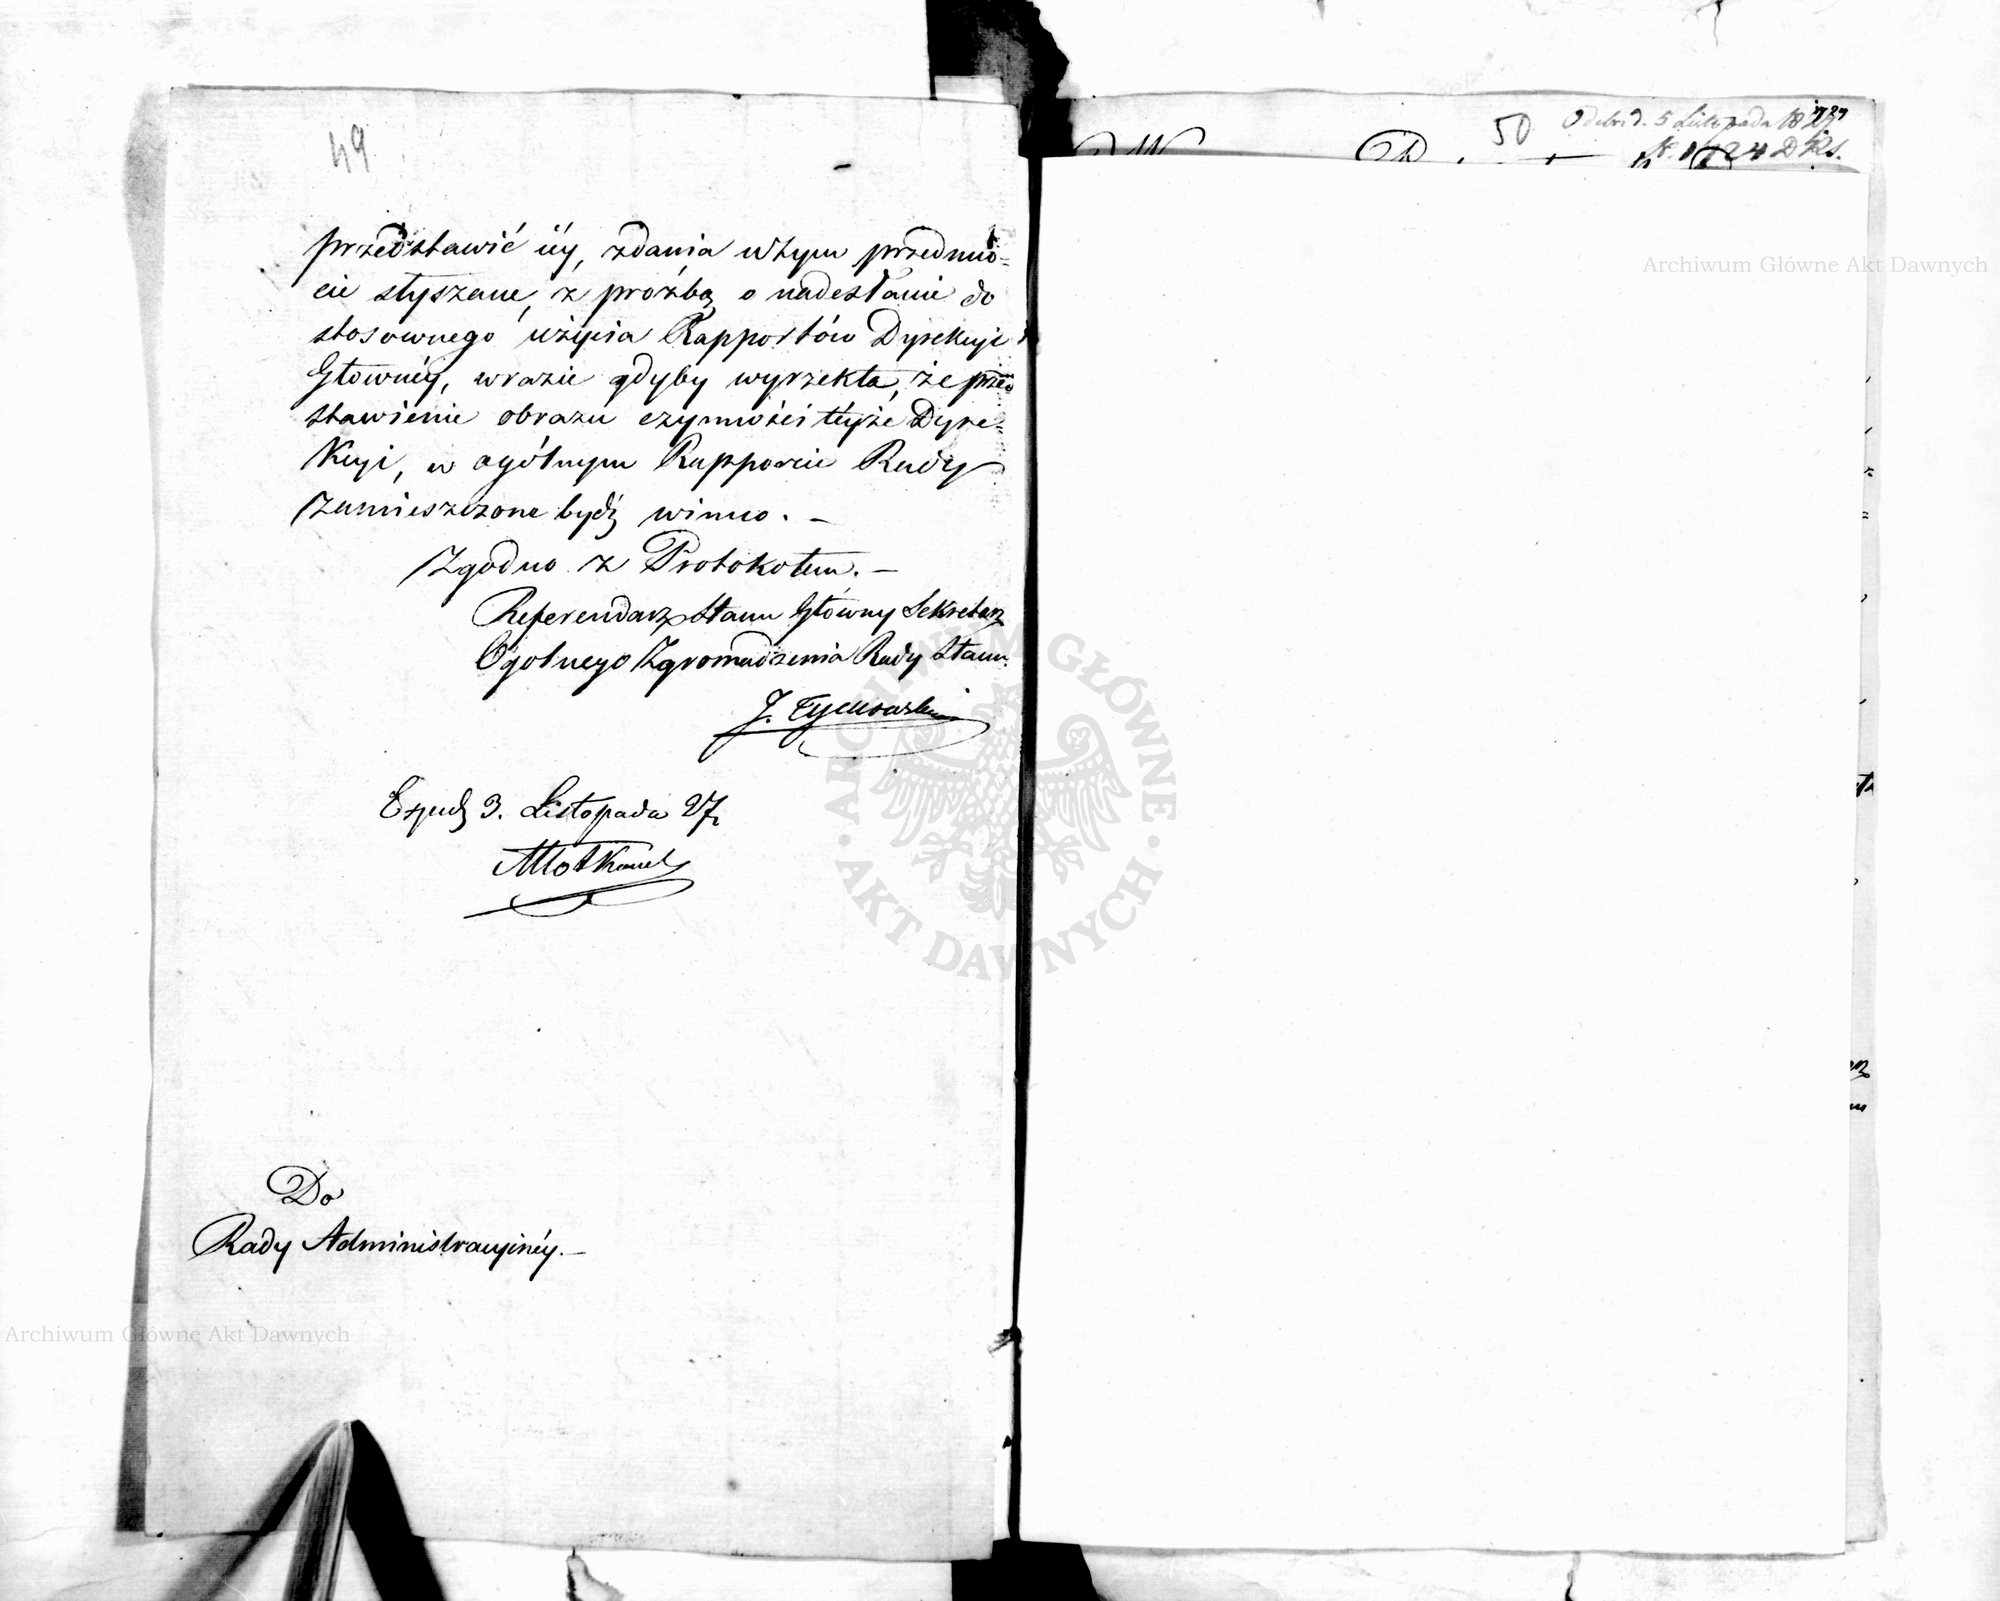 49
przedstawić iéy, zdania w tym przedmio=
cie słyszane, z proźbą o nadesłanie do
stosownego użycia Rapportów Dyrekcyi
Głównéy, wrazie gdyby wyrzekła, że przed
stawienie obrazu czynności téyże Dyre=
kcyi, w ogólnym Rapporcie Rady
zamieszczone bydź winno. –
Zgodno z Protokołem. –
Referendarz Stanu Główny Sekretarz
Ogólnego Zgromadzenia Rady Stanu.
J.
3. Listopada 27
Do
Rady Administracyinéy. –
50
Odebr: d. 5 Listopada 1827
Archiwum Główne Akt Dawnych
Archiwum Główne Akt Dawnych
ARCHIWUM GŁÓWNE
AKT DAWNYCH